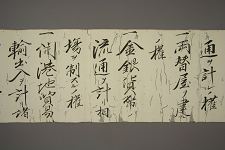 通ヲ計ル権
一両替屋ヲ建ル
ノ権
一金銀貨幣ノ
流通ヲ計リ相
場ヲ制スル権
一開港地貿易
輸出入ヲ計リ諸